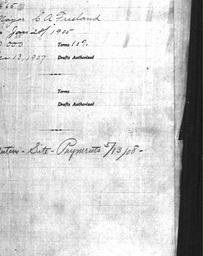 Mayor C A Freeland
Jan 20/ 1905
0 000 Terms 10%
13, 1907 Drafts Authorized
Terms
Drafts Authorized
- Site - Payments 5/13/08 -